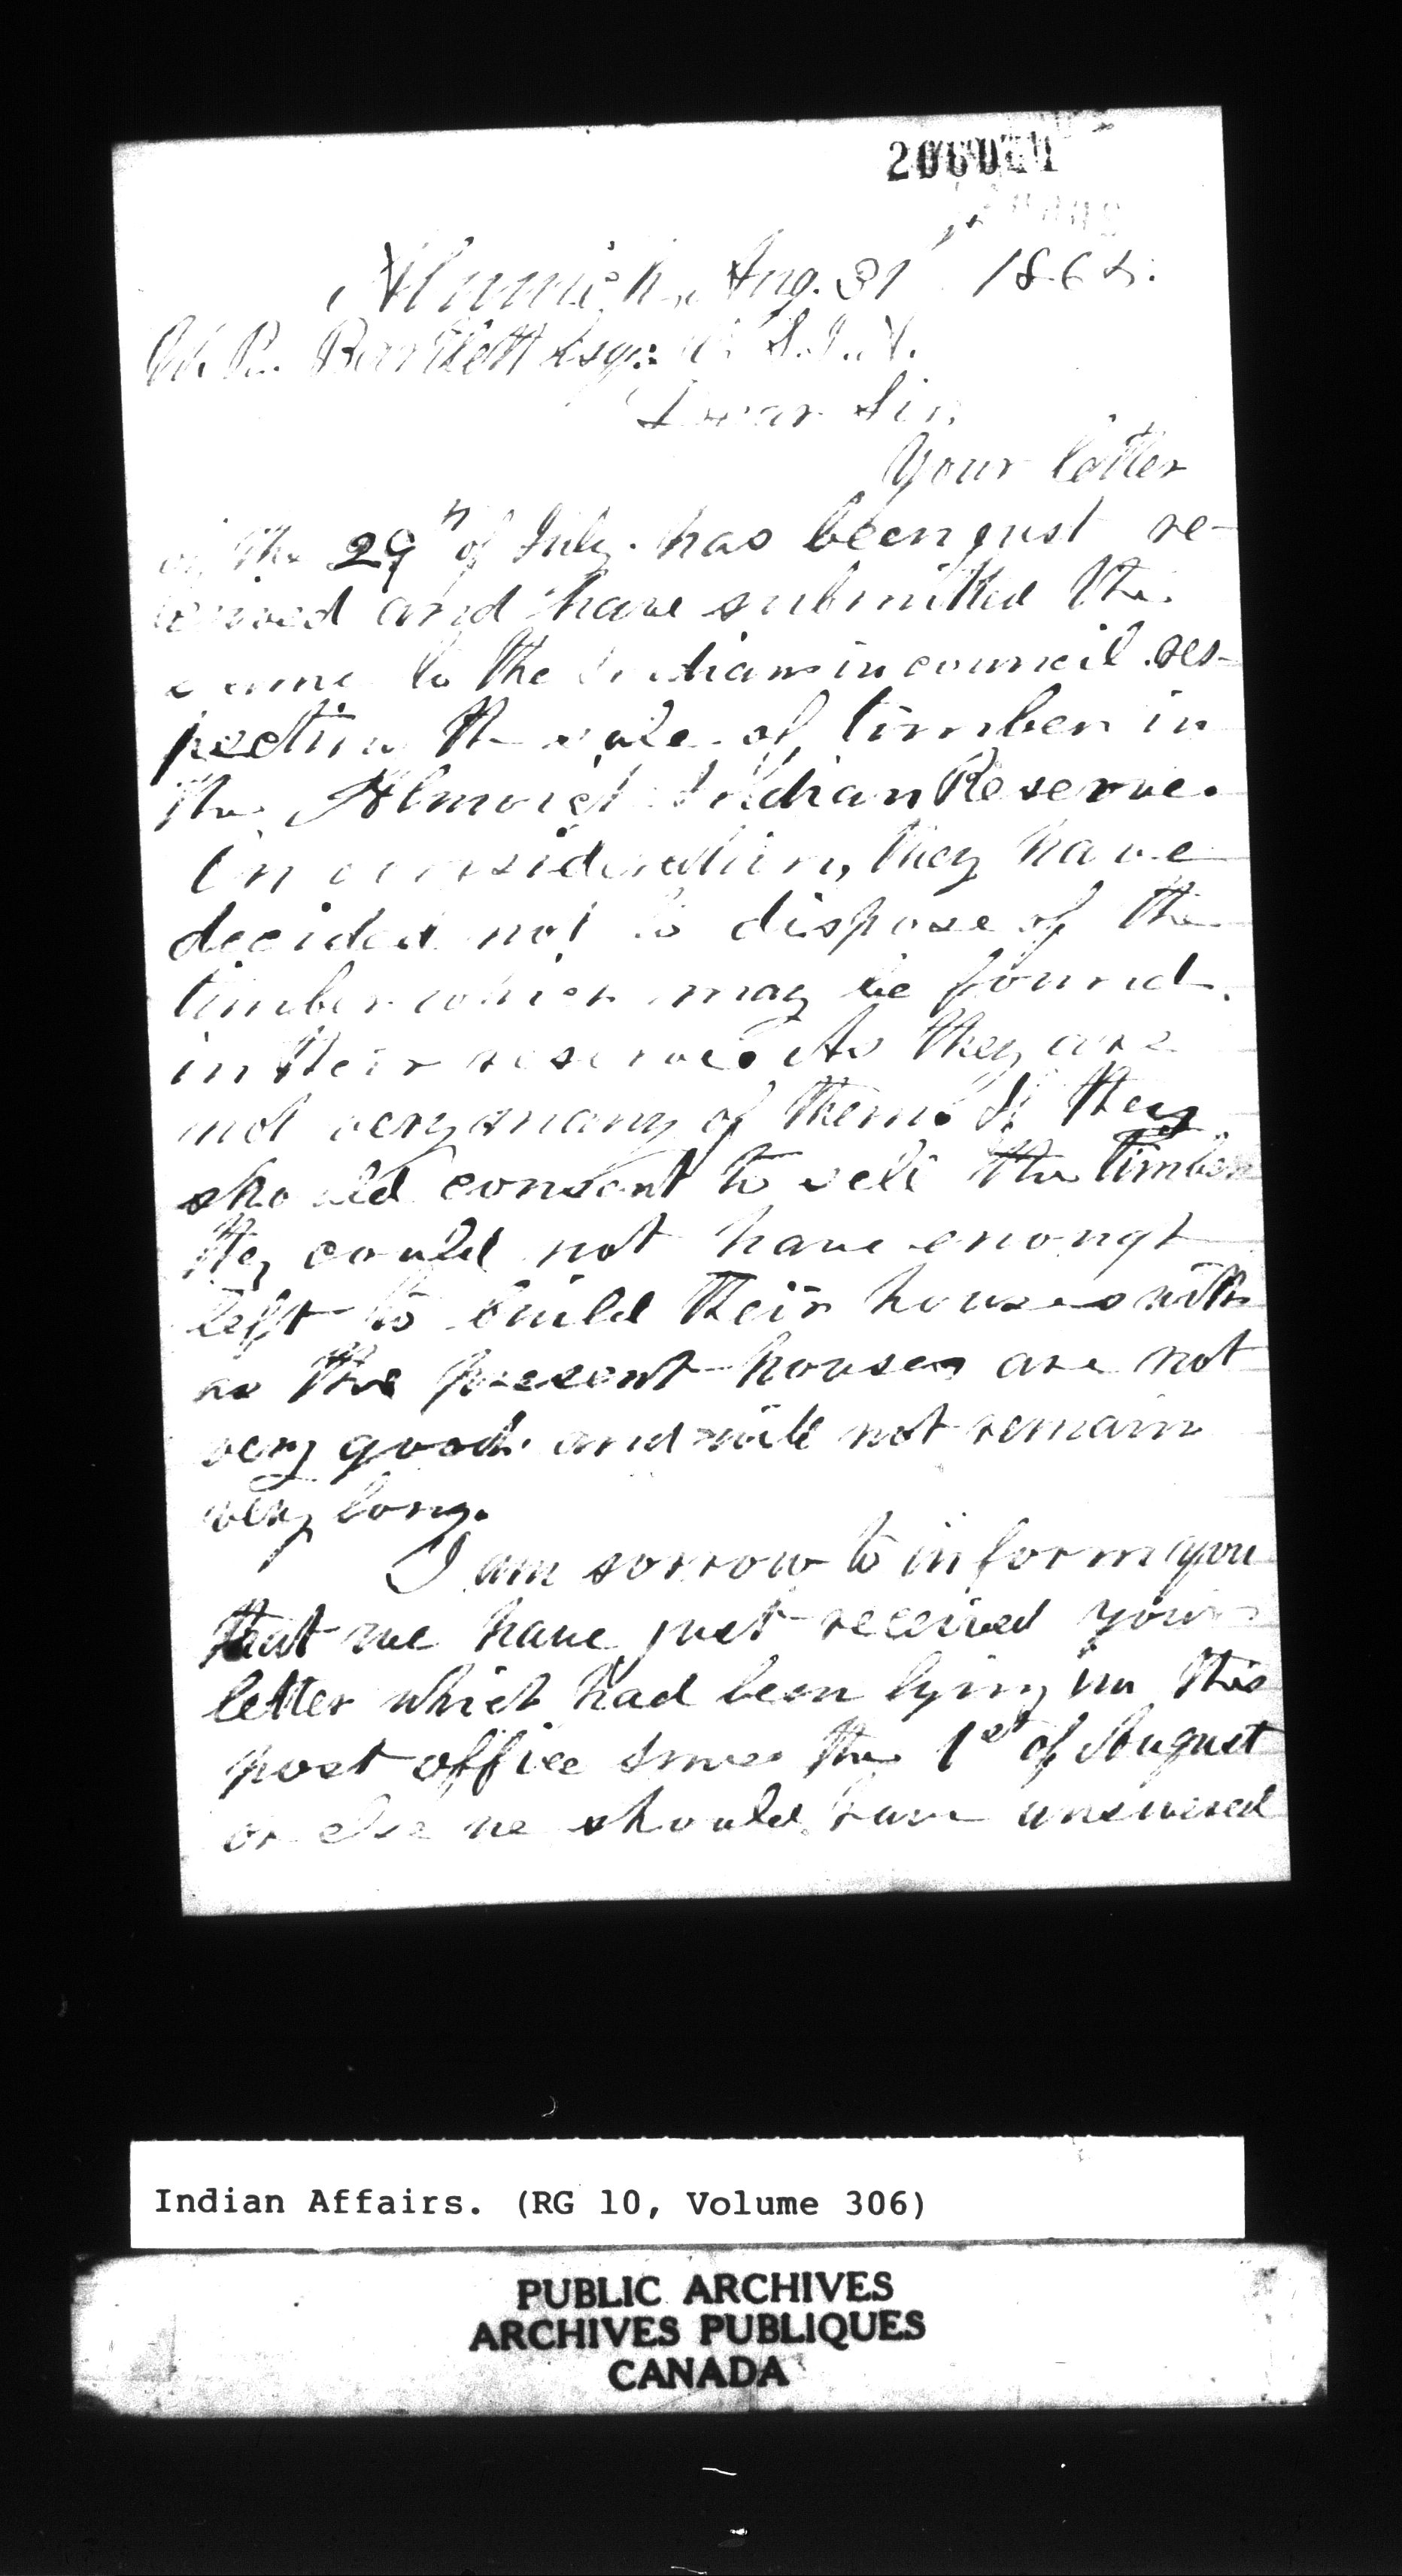 206021
Alnwick, Aug. 31 1868.
W. R. Bartlett Esqr: V. S. I. A.
Dear Sir,
Your letter
of the 29th of July. has been just re-
ceived and have submitted the
same to the Indians in council res-
pecting the sale of timber in
the Alnwick Indian Reserve.
On consideration, they have
decided not to dispose of the
timber which may be found
in their reserve. As they are
not very many of them. If they
should consent to sell the timber
they could not have enough
left to build their houses with
as the present houses are not
very good. and will not remain
very long.
I am sorrow to inform you
that we have just received your
letter which had been lying in this
post office since the 1st of August
or else we should have answered
Indian Affairs. (RG 10, Volume 306)
PUBLIC ARCHIVES
ARCHIVES PUBLIQUES
CANADA